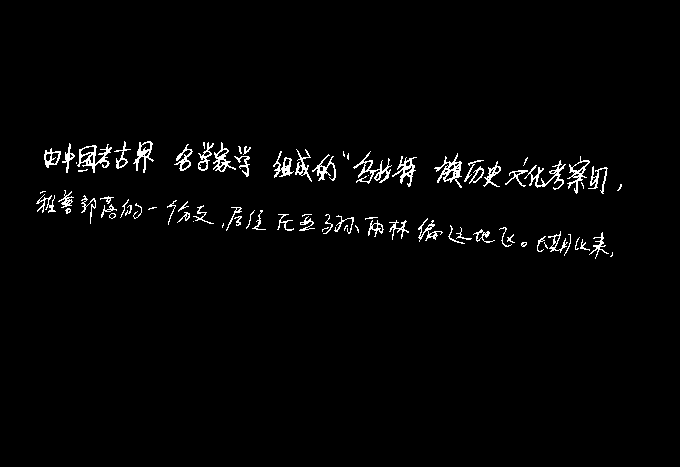 由中国考古界 名学家学 组成的“乌拉特 旗历史文化考察团,
雅普部落的一个分支,居住在亚马孙雨林偏远地区。长期以来,